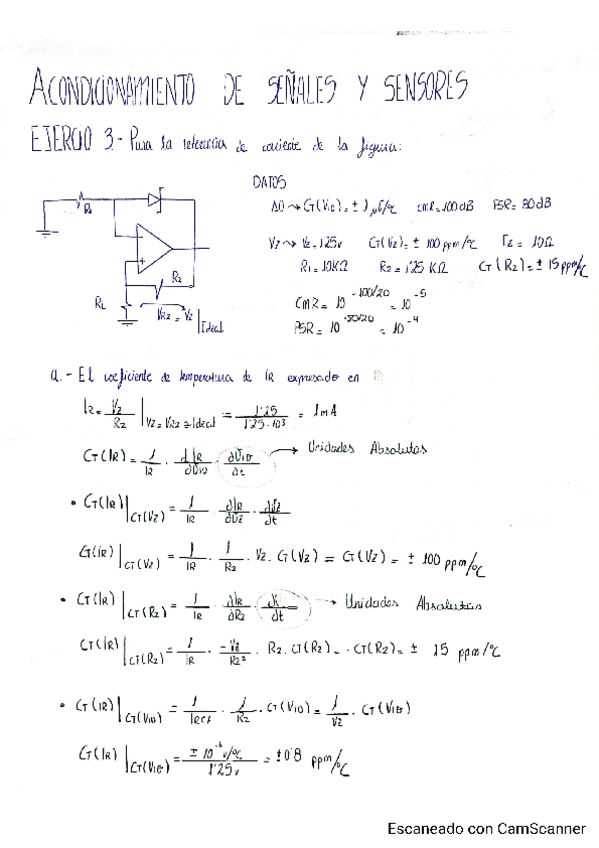 ACONDICIONAMIENTO DE SEÑALES Y SENSORES
EJERCIO 3.- Para la referencia de corriente de la figura:
DATOS
AO → CT(VIO) = ± 1 μV/ºC CMR = 100 dB PSR = 80 dB
VZ → VZ = 1.25v CT(VZ) = ± 100 ppm/ºC rZ = 10Ω
R1 = 10KΩ R2 = 1'25 KΩ CT(R2) = ± 15 ppm/ºC
CMR = 10^-100/20 = 10^-5
PSR = 10^-80/20 = 10^-4
R2
RL
VR2 = VZ | Ideal
a.- El coeficiente de temperatura de IR expresado en
IR = VZ/R2 | VZ = VR2 = Ideal = 1'25/1'25·10³ = 1mA
CT(IR) = 1/IR · dIR/dVIO · dVIO/dt → Unidades Absolutas
• CT(IR)|CT(VZ) = 1/IR · dIR/dVZ · dVZ/dt
CT(IR)|CT(VZ) = 1/IR · 1/R2 · VZ · CT(VZ) = CT(VZ) = ± 100 ppm/ºC
• CT(IR)|CT(R2) = 1/IR · dIR/dR2 · dR/dt → Unidades Absolutas
CT(IR)|CT(R2) = 1/IR · -VZ/R2² · R2 · CT(R2) = - CT(R2) = ± 15 ppm/ºC
• CT(IR)|CT(VIO) = 1/IREF · 1/R2 · CT(VIO) = 1/VZ · CT(VIO)
CT(IR)|CT(VIO) = ± 10^-6 v/ºC / 1'25v = ±0'8 ppm/ºC
Escaneado con CamScanner